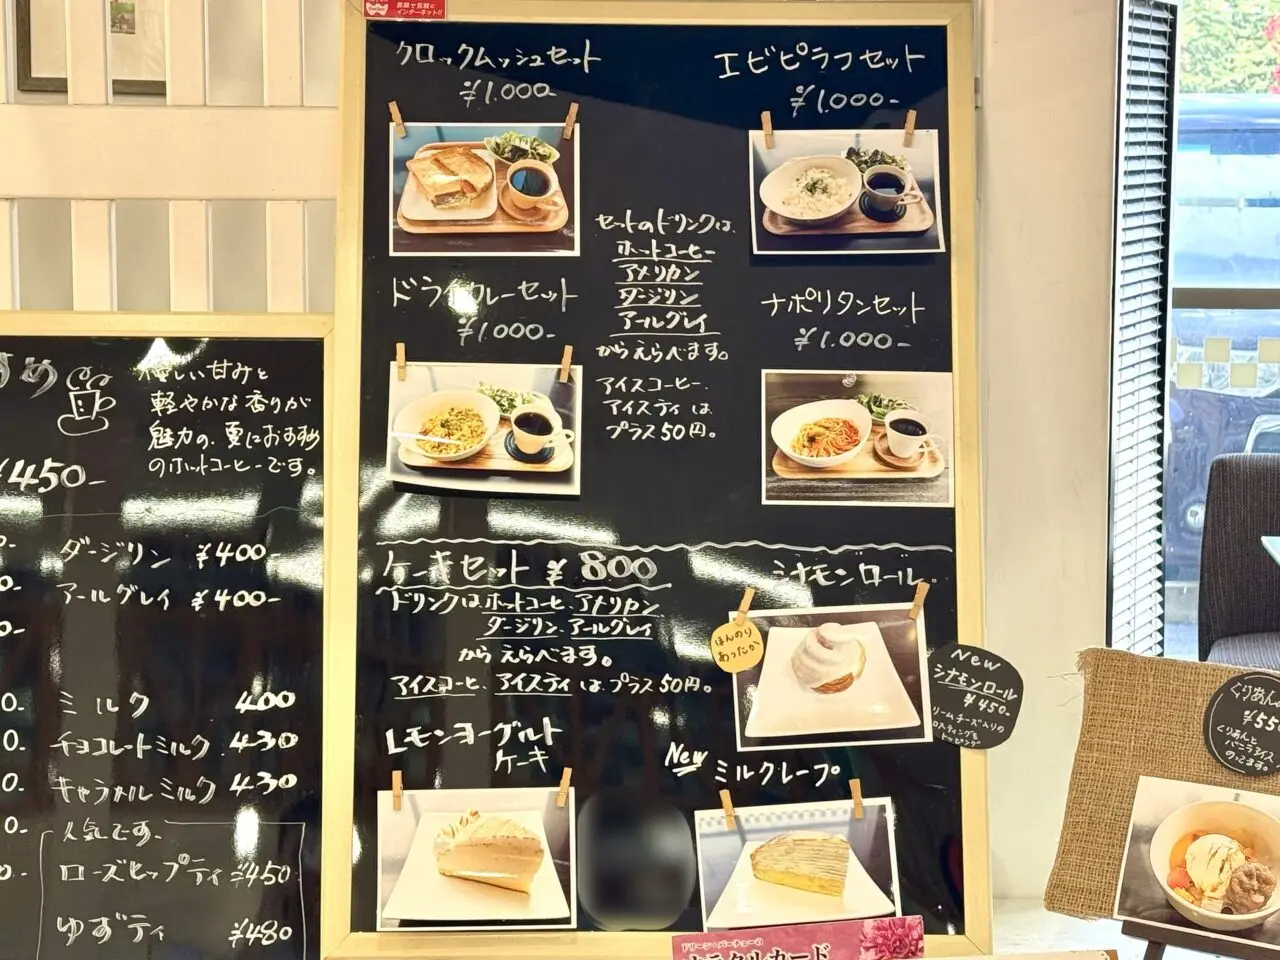 無線で気軽に
インターネット!!
クロックムッシュセット
¥1.000-
エビピラフセット
¥1.000-
セットのドリンクは、
ホットコーヒー
アメリカン
ダージリン
アールグレイ
からえらべます。
アイスコーヒー、
アイスティは
プラス50円。
ドライカレーセット
¥1.000-
ナポリタンセット
¥1.000-
ケーキセット ¥800
ドリンクはホットコーヒ、アメリカン
ダージリン、アールグレイ
からえらべます。
アイスコーヒ、アイスティは、プラス50円。
シナモンロール
ほんのり
あったか
New
シナモンロール
¥450-
リームチーズ入りの
トッピング
レモンヨーグルト
ケーキ
New ミルクレープ
すめ
優しい甘みと
軽やかな香りが
魅力の、更におすすめ
のホットコーヒーです。
¥450-
ダージリン ¥400-
アールグレイ ¥400-
ミルク 400
チョコレートミルク 430
キャラメルミルク 430
人気です。
ローズヒップティ ¥450
ゆずティ ¥480
くりあん
¥55
くりあんと
バニラアイス
のってます。